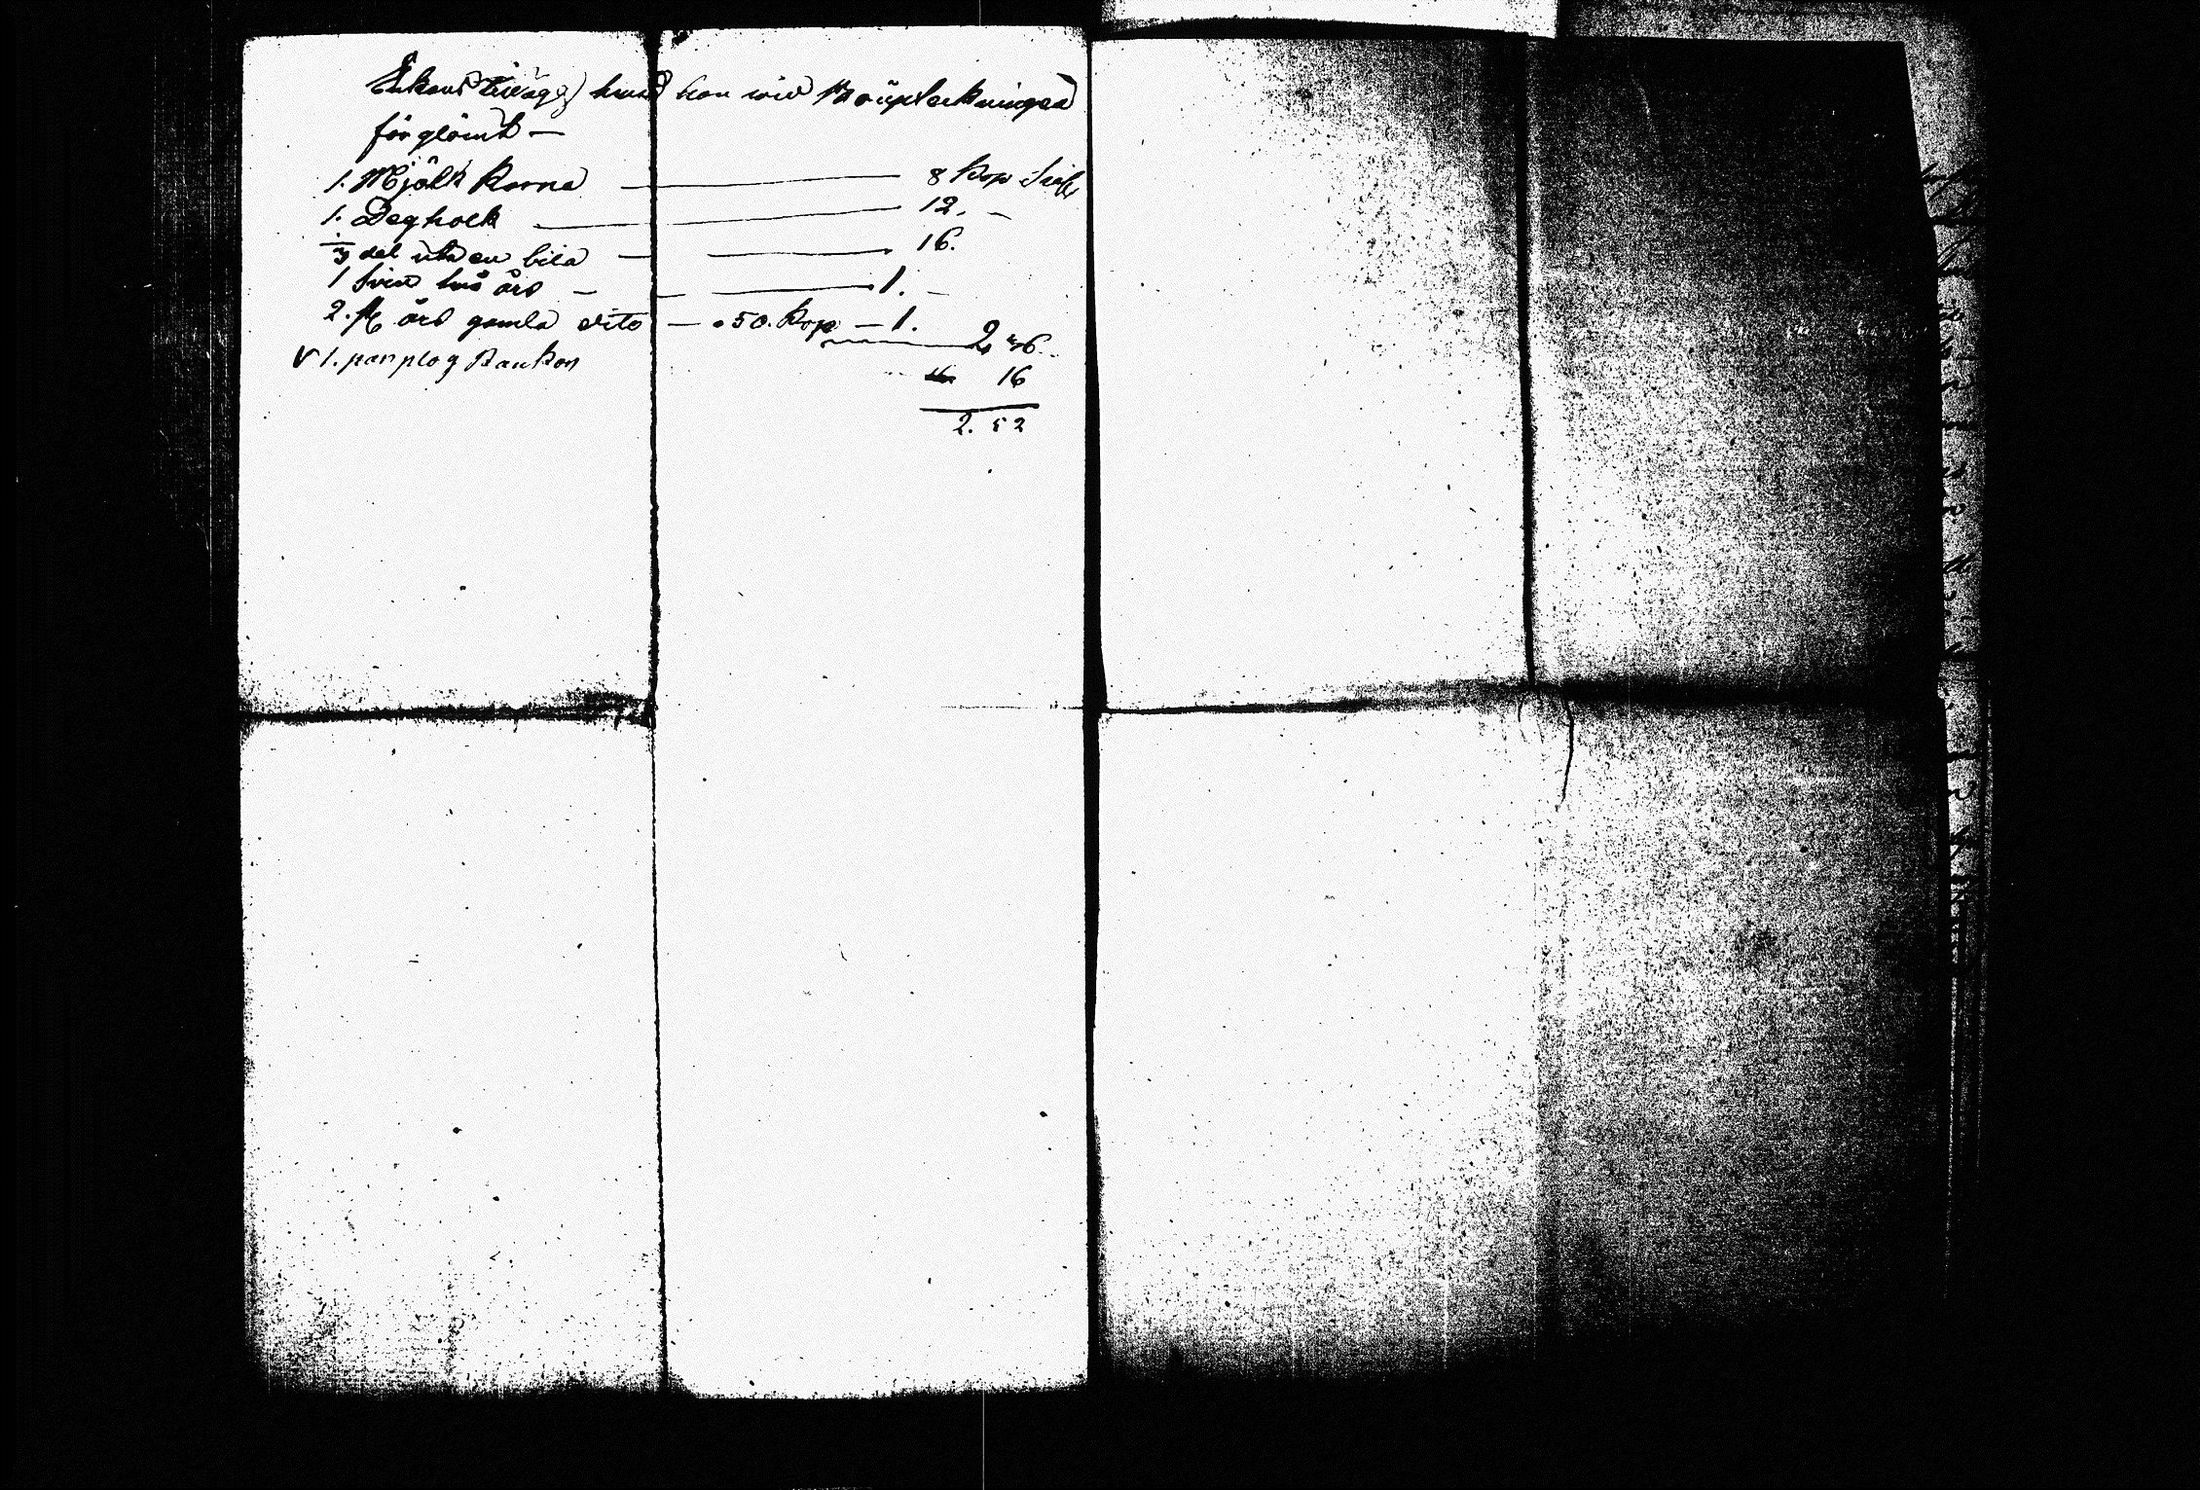 Enkans tilläg hvad hon wid Bouptekningen
förglömt —
1. Mjölk Korna — 8 Kop Silf
1. Deghoek — 12. —
1/3 del uta en bila — — 16.
1 Svin två års — — 1. —
2. st års gamla dito — a 50. Kop — 1.
2 36.
V 1. par plog Raukon
16
2. 52